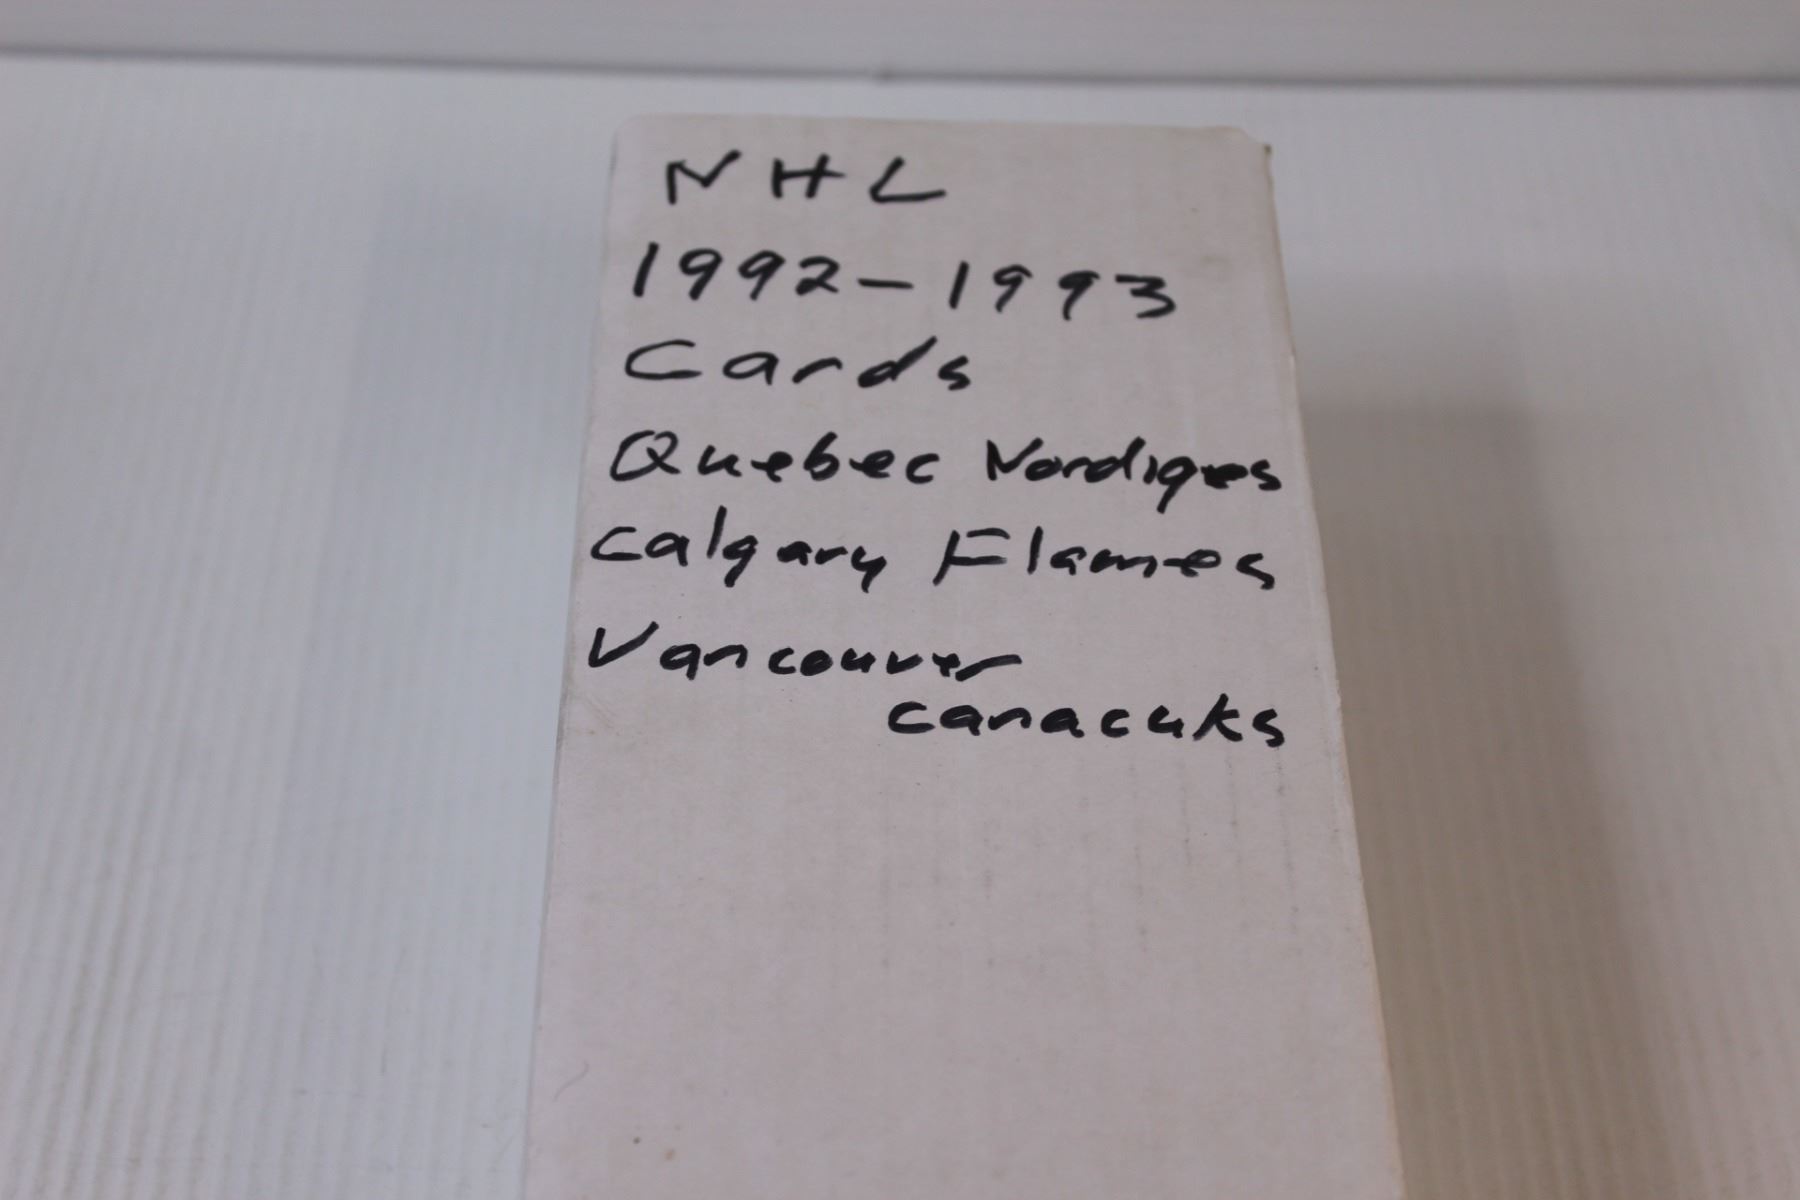 NHL
1992-1993
Cards
Quebec Nordiqes
Calgary Flames
Vancouver
canacuks